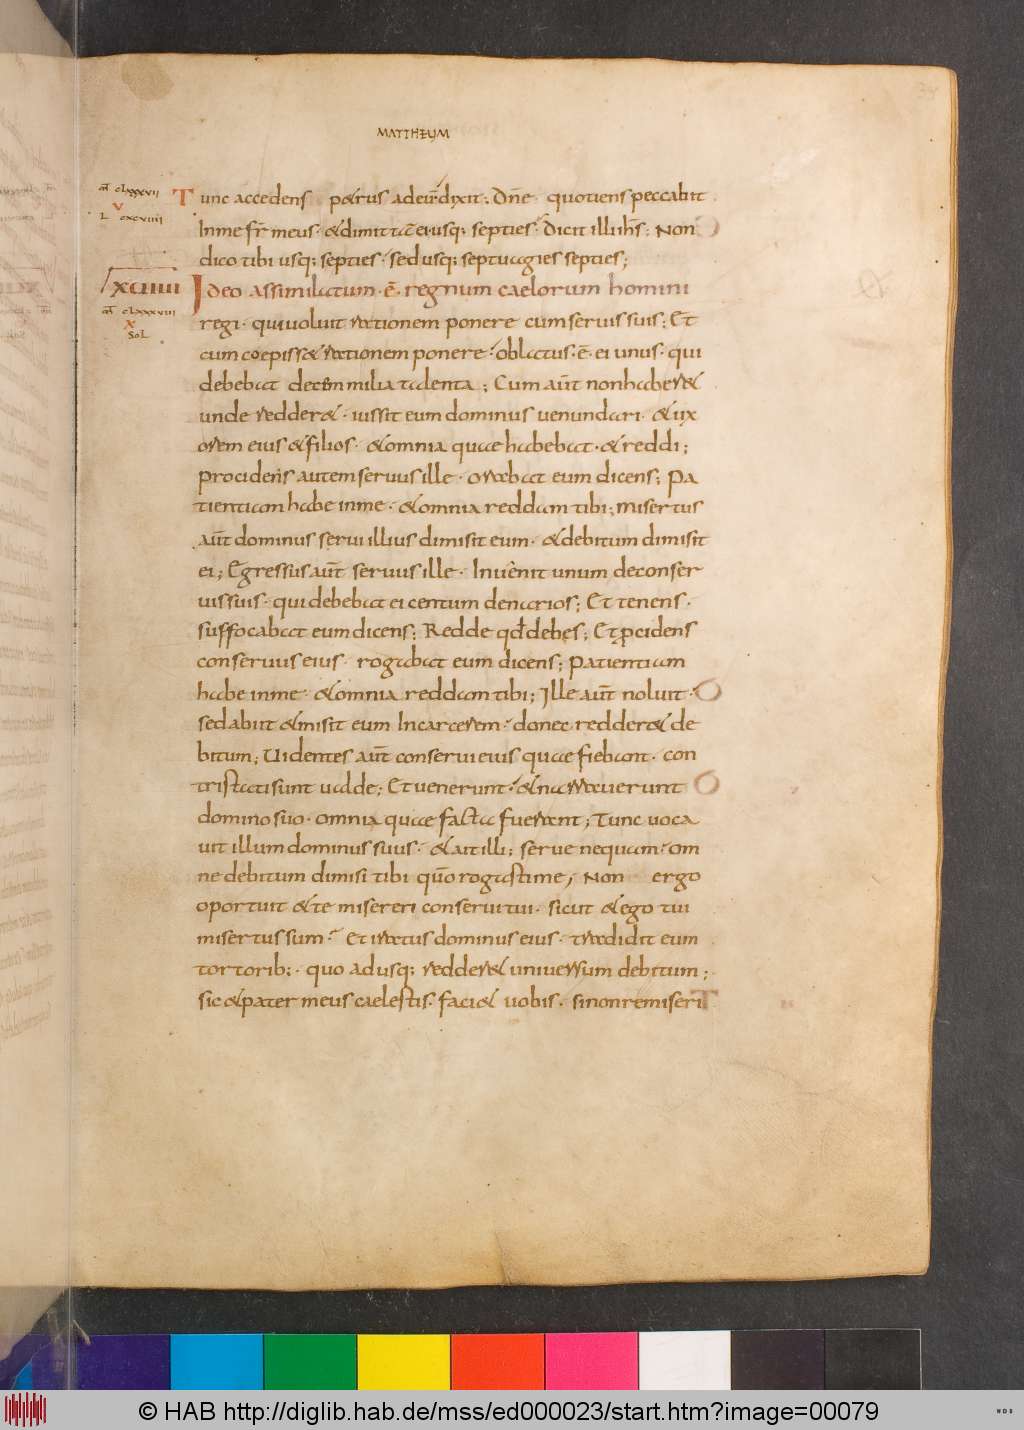 MATTHEUM
Tunc accedens petrus ad eum̄ dixit; Dn̄e quotiens peccabit
In me fr̄ meus· & dimittā ei usq; septies· Dicit illi ih̄s; Non
dico tibi usq; septies· sed usq; septuagies septies;
Ideo assimilatum·ē·regnum caelorum homini
regi· qui voluit rationem ponere cum servis suis; Et
cum coepiss& rationem ponere· oblatus·ē·ei unus· qui
debebat decem milia talenta; Cum aūt non haber&
unde redder&· iussit eum dominus venundari· & ux
orem eius & filios· & omnia quae habebat·& reddi;
procidens autem servus ille· orabat eum dicens; Pa
tientiam habe in me· & omnia reddam tibi; misertus
aūt dominus servi illius dimisit eum· & debitum dimisit
ei; Egressus aūt servus ille· Invenit unum de conser
vis suis· qui debebat ei centum denarios; Et tenens·
suffocabat eum dicens; Redde qđ debes; Et ꝓcidens
conservus eius· rogabat eum dicens; Patientiam
habe in me· & omnia reddam tibi; Ille aūt noluit·
sed abiit & misit eum In carcerem· donec redder& de
bitum; Videntes aūt conservi eius quae fiebant· con
tristati sunt valde; Et venerunt· & narraverunt
domino suo· omnia quae facta fuerant; Tunc voca
vit illum dominus suus· & ait illi; serve nequam· om
ne debitum dimisi tibi qūo rogasti me; Non ergo
oportuit & te misereri conservi tui· sicut & ego tui
misertus sum· Et iratus dominus eius· tradidit eum
tortorib;· quo adusq; redder& universum debitum;
sic & pater meus caelestis· faci& vobis· si non remiseri
clxxxvii
V
L cxcviiii
XCIIII
clxxxviii
X
Sol
© HAB http://diglib.hab.de/mss/ed000023/start.htm?image=00079